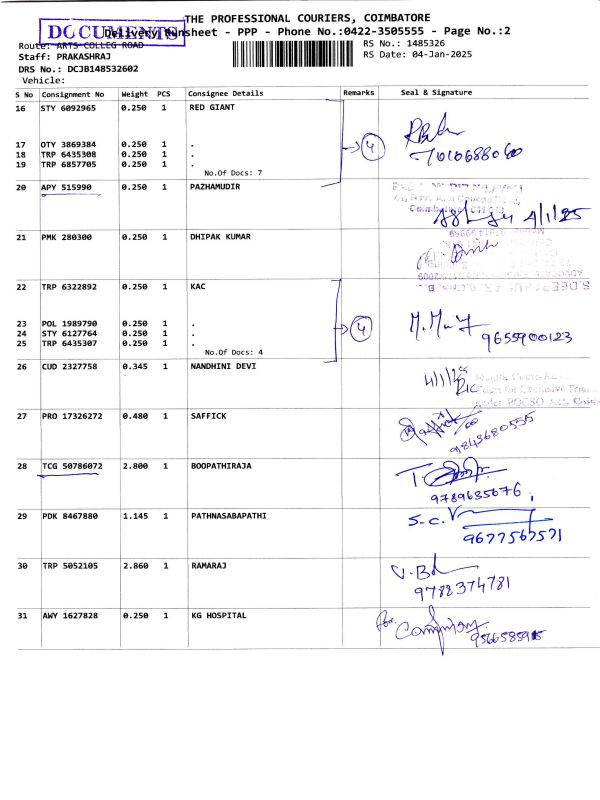 THE PROFESSIONAL COURIERS, COIMBATORE
DOCUMENTS
Delivery Runsheet - PPP - Phone No.:0422-3505555 - Page No.:2
Route: ARTS COLLEG ROAD
RS No.: 1485326
Staff: PRAKASHRAJ
RS Date: 04-Jan-2025
DRS No.: DCJB148532602
Vehicle:
S No Consignment No Weight PCS Consignee Details Remarks Seal & Signature
16 STY 6092965 0.250 1 RED GIANT
17 OTY 3869384 0.250 1 .
18 TRP 6435308 0.250 1 .
19 TRP 6857705 0.250 1 .
4
No.Of Docs: 7
20 APY 515990 0.250 1 PAZHAMUDIR
4/1/25
21 PMK 280300 0.250 1 DHIPAK KUMAR
22 TRP 6322892 0.250 1 KAC
23 POL 1989790 0.250 1 .
24 STY 6127764 0.250 1 .
25 TRP 6435307 0.250 1 .
4
9655900123
No.Of Docs: 4
26 CUD 2327758 0.345 1 NANDHINI DEVI
27 PRO 17326272 0.480 1 SAFFICK
9843680555
28 TCG 50786072 2.800 1 BOOPATHIRAJA
9789635676
29 PDK 8467880 1.145 1 PATHNASABAPATHI
S.C.
9677567571
30 TRP 5052105 2.860 1 RAMARAJ
9782374781
31 AWY 1627828 0.250 1 KG HOSPITAL
for